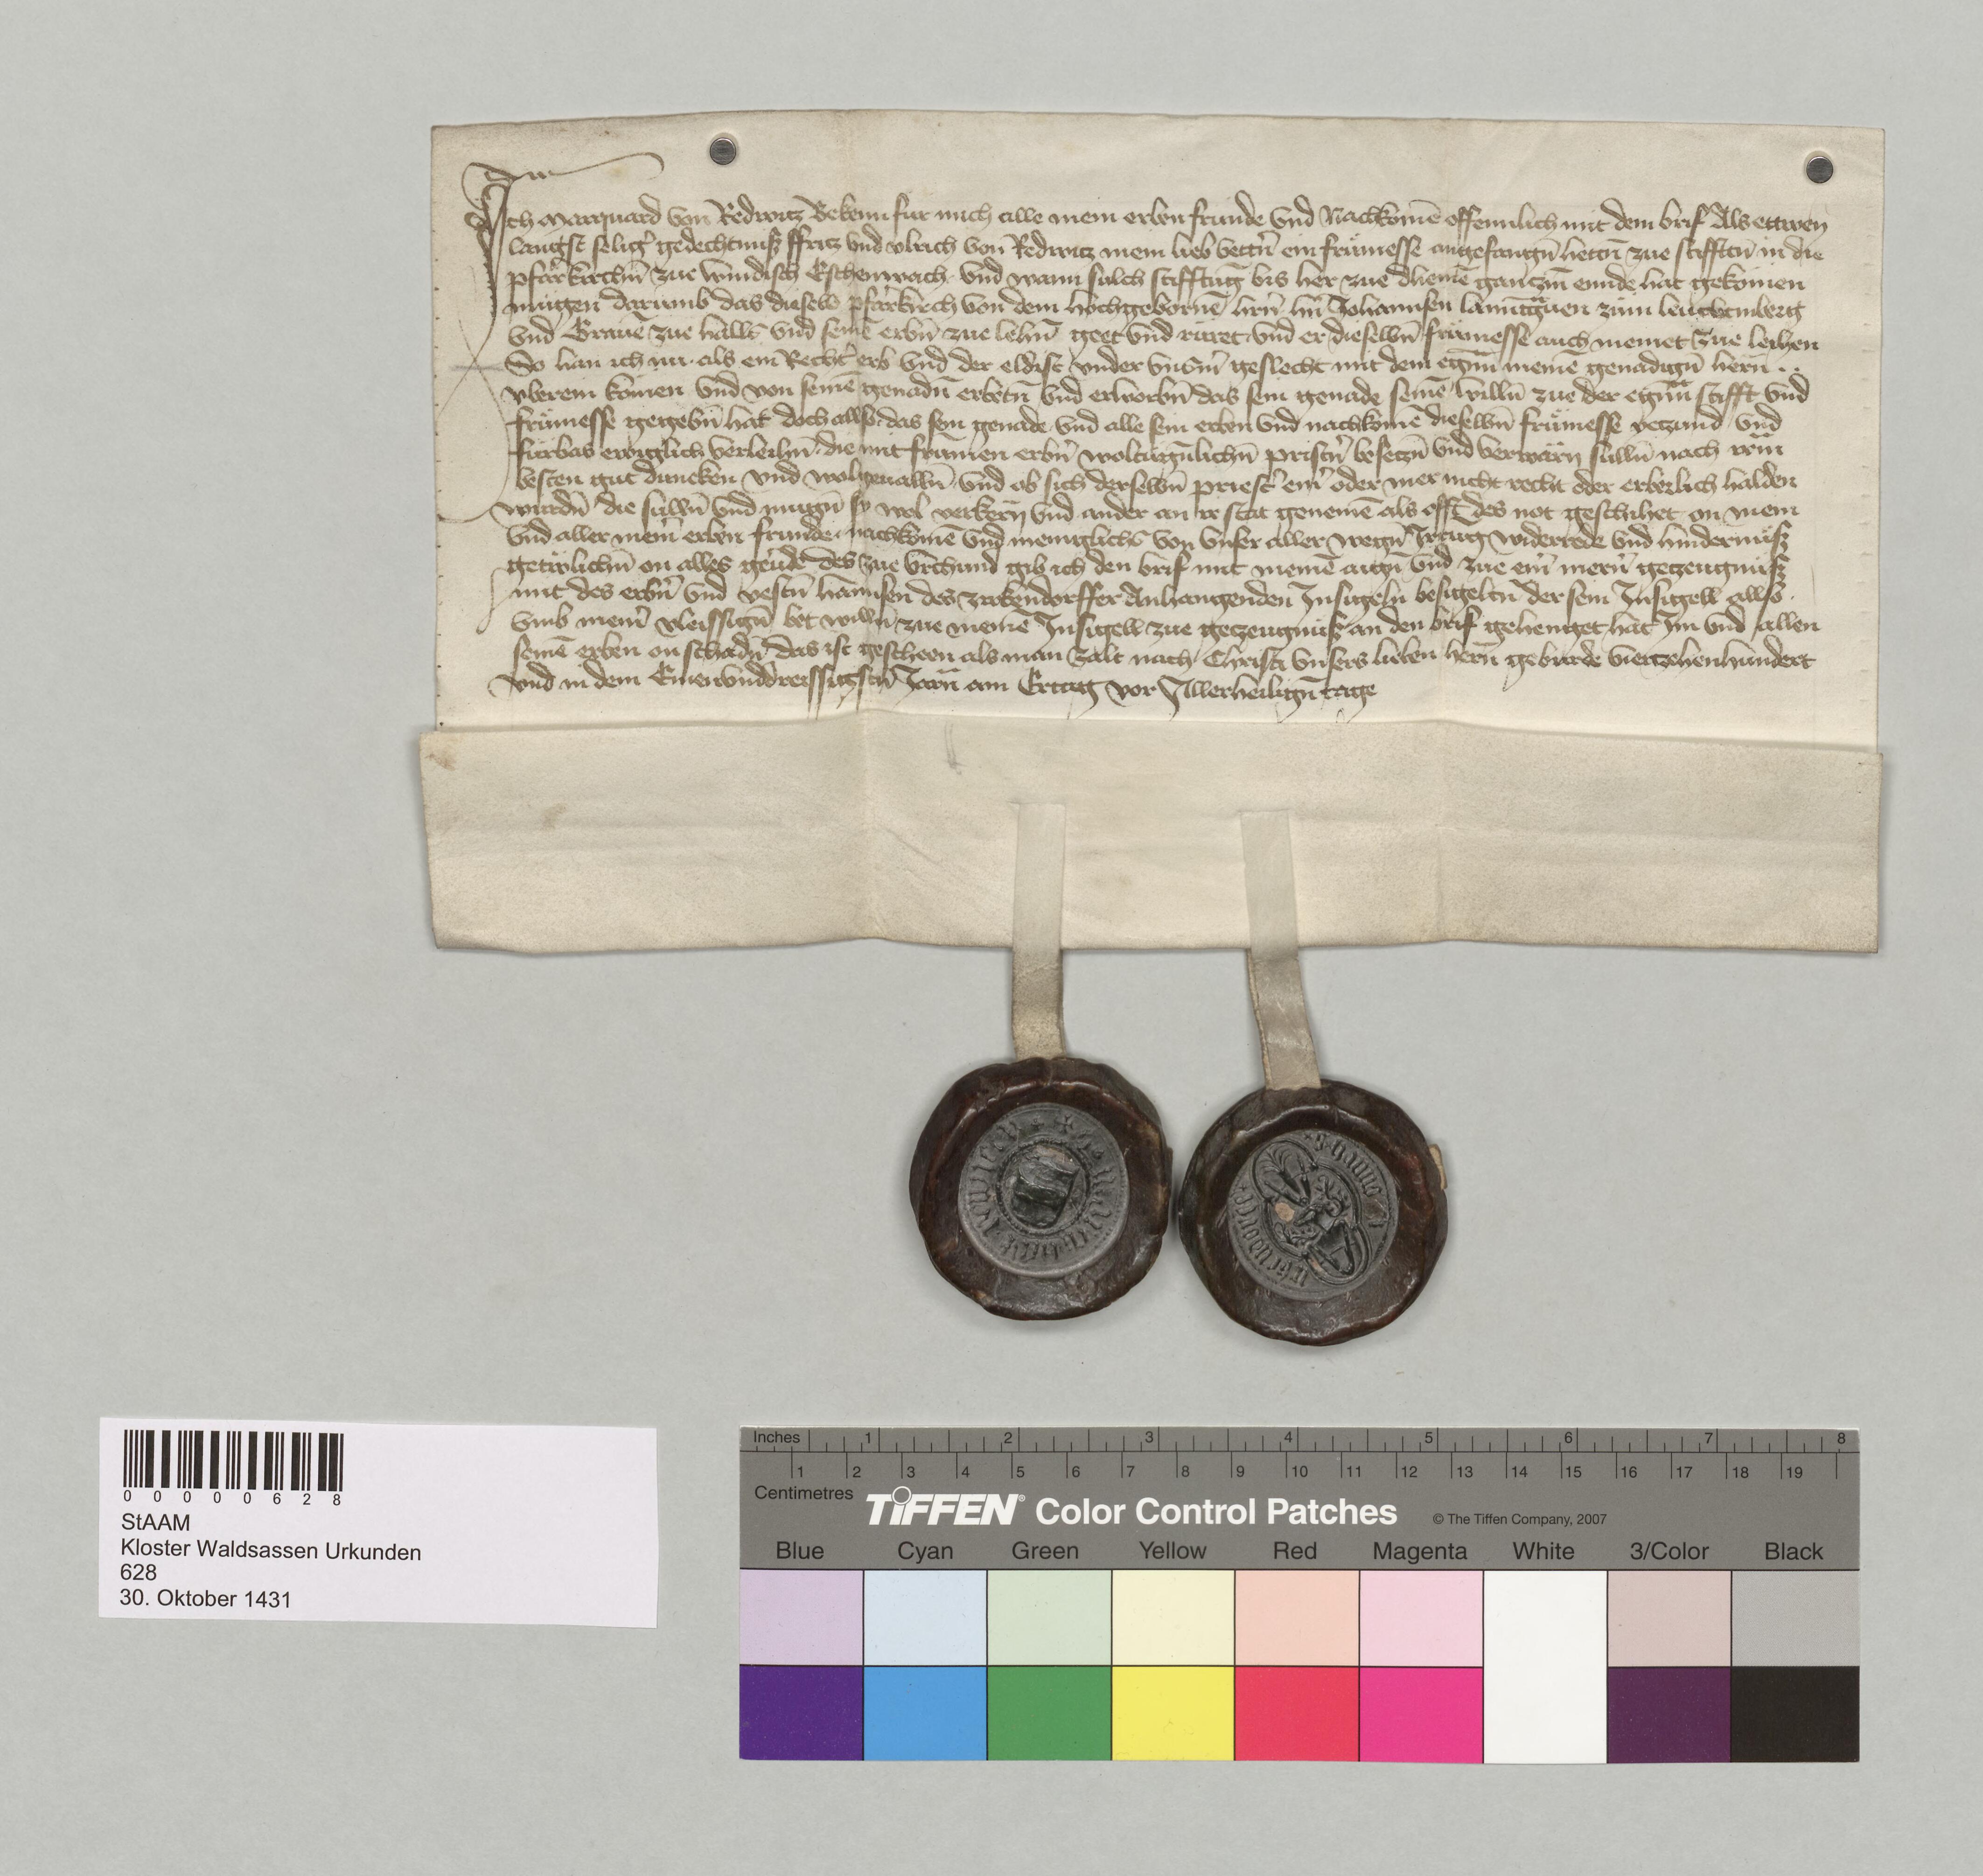 Ich Marquard von Redwitz Bekenn fur mich alle mein erben frunde vnd Nachkomē offennlich mit dem brif Als ettwen
langst selig' gedechtnuß ffritz vnd vlrich von Redwitz mein lieb vettn̄ ein frümesse angefangn̄ hettn̄ zue stifftn̄ in die
pfarrkirchn̄ zue windisch Eschenwach vnd wann sulch stifftūg bis her zue dheinē gantzm̄ ennde hat gekomen
mügen darumb das dieselb pfarrkirch von dem hochgebornē hrn̄ hn̄ Johannsen lanntgrauen zum leuchtmberg
vnd Grauē zue halls vnd seinē erbn̄ zue lehn̄ geet vnd rüret vnd er dieselbn̄ frümesse auch meinet zue leihen
So han ich nu als ein Recht' erb vnd der eldist vnder vnsm̄ geslecht mit dem egn̄n meinē genadign̄ hern̄ ..
vberein komen vnd von seinē genadn̄ erbetn̄ vnd erworbn̄ das sein genade seinē willn̄ zue der egn̄n stifft vnd
frümesse gegebn̄ hat doch allso das sein genade vnd alle sein erben vnd nachkomē dieselbn̄ frümesse yetzund vnd
fürbas ewiglich verleihn̄ die mit frümen erbn̄ priestn̄ besetzn̄ vnd verwarn̄ sulln̄ nach irm
besten gut duncken vnd wolgeualln̄ vnd ob sich derselbn̄ priest' ein' oder mer nicht recht oder erberlich halden
wurdn̄ die sulln̄ vnd mugn̄ sy wol verkern̄ vnd ander an ir stat genemē als offt des not geschihet on mein
vnd aller mein̄ erben frunde nachkomē vnd meniglichs von vnser aller wegn̄ Irrung widerrede vnd hindernuß
getrewlichn̄ on alles geuerde des zue vrchund gib ich den brif mit meinē aign̄ vnd zue ein' mern̄ getzeugnuß
mit des erbn̄ vnd vestn̄ hannsen des zirkendorffer Anhangenden Insigeln besigeltn̄ der sein Insigell allso
vmb mein' vleissign̄ bet willn̄ zue meinē Insigell zue getzeugnuß an den brif gehenget hat Im vnd allen
seinē erben on schadn̄ das ist gescheen als man zalt nach Christi vnsers lieben hern̄ geburde viertzehenhundert
vnd in dem Einenvnddreissigstn̄ Jarn̄ am Ertag vor Allerheilign̄ tage
0 0 0 0 0 6 2 8
StAAM
Kloster Waldsassen Urkunden
628
30. Oktober 1431
Inches 1 2 3 4 5 6 7 8
1 2 3 4 5 6 7 8 9 10 11 12 13 14 15 16 17 18 19
Centimetres
TIFFEN® Color Control Patches © The Tiffen Company, 2007
Blue Cyan Green Yellow Red Magenta White 3/Color Black